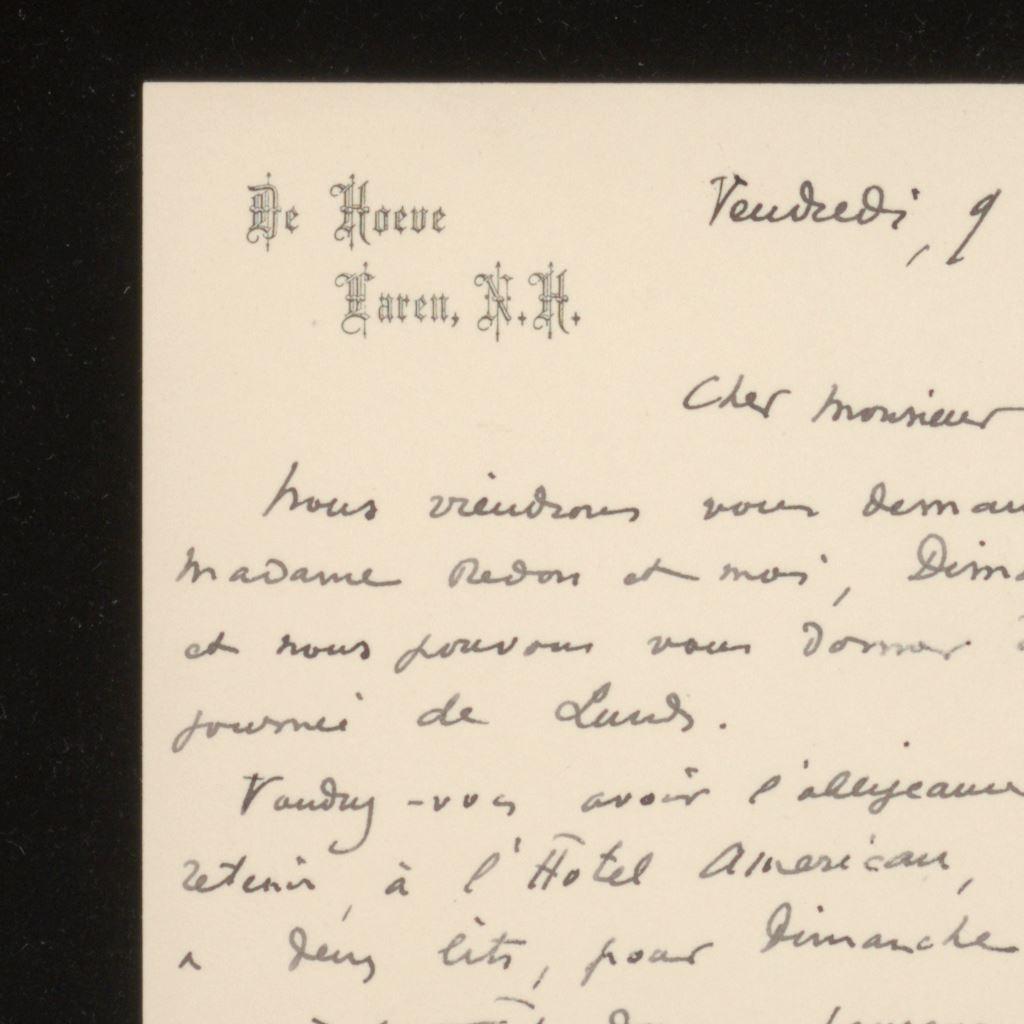 De Hoeve
Laren, N.H.
Vendredi, 9
Cher Monsieur
Nous viendrons vous deman
Madame Redon et moi, Dima
et nous pouvons vous donner
journée de Lundi.
Voudrez-vous avoir l'obligeance
retenir, à l'Hotel Américain,
à deux lits, pour Dimanche